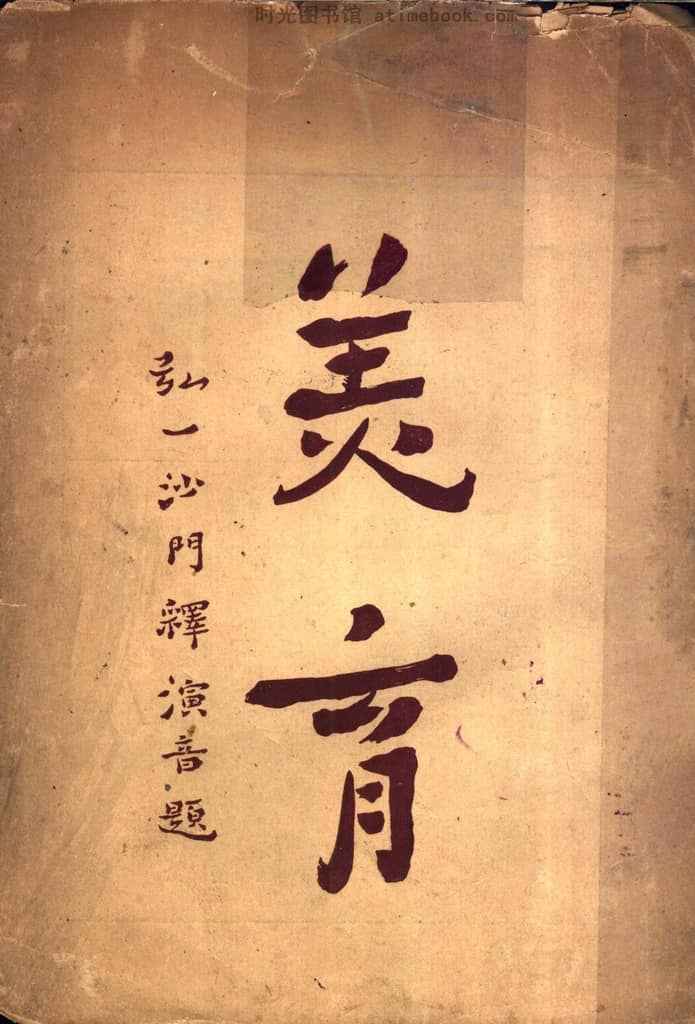 时光图书馆 atimebook.com
美育
弘一沙門釋演音題